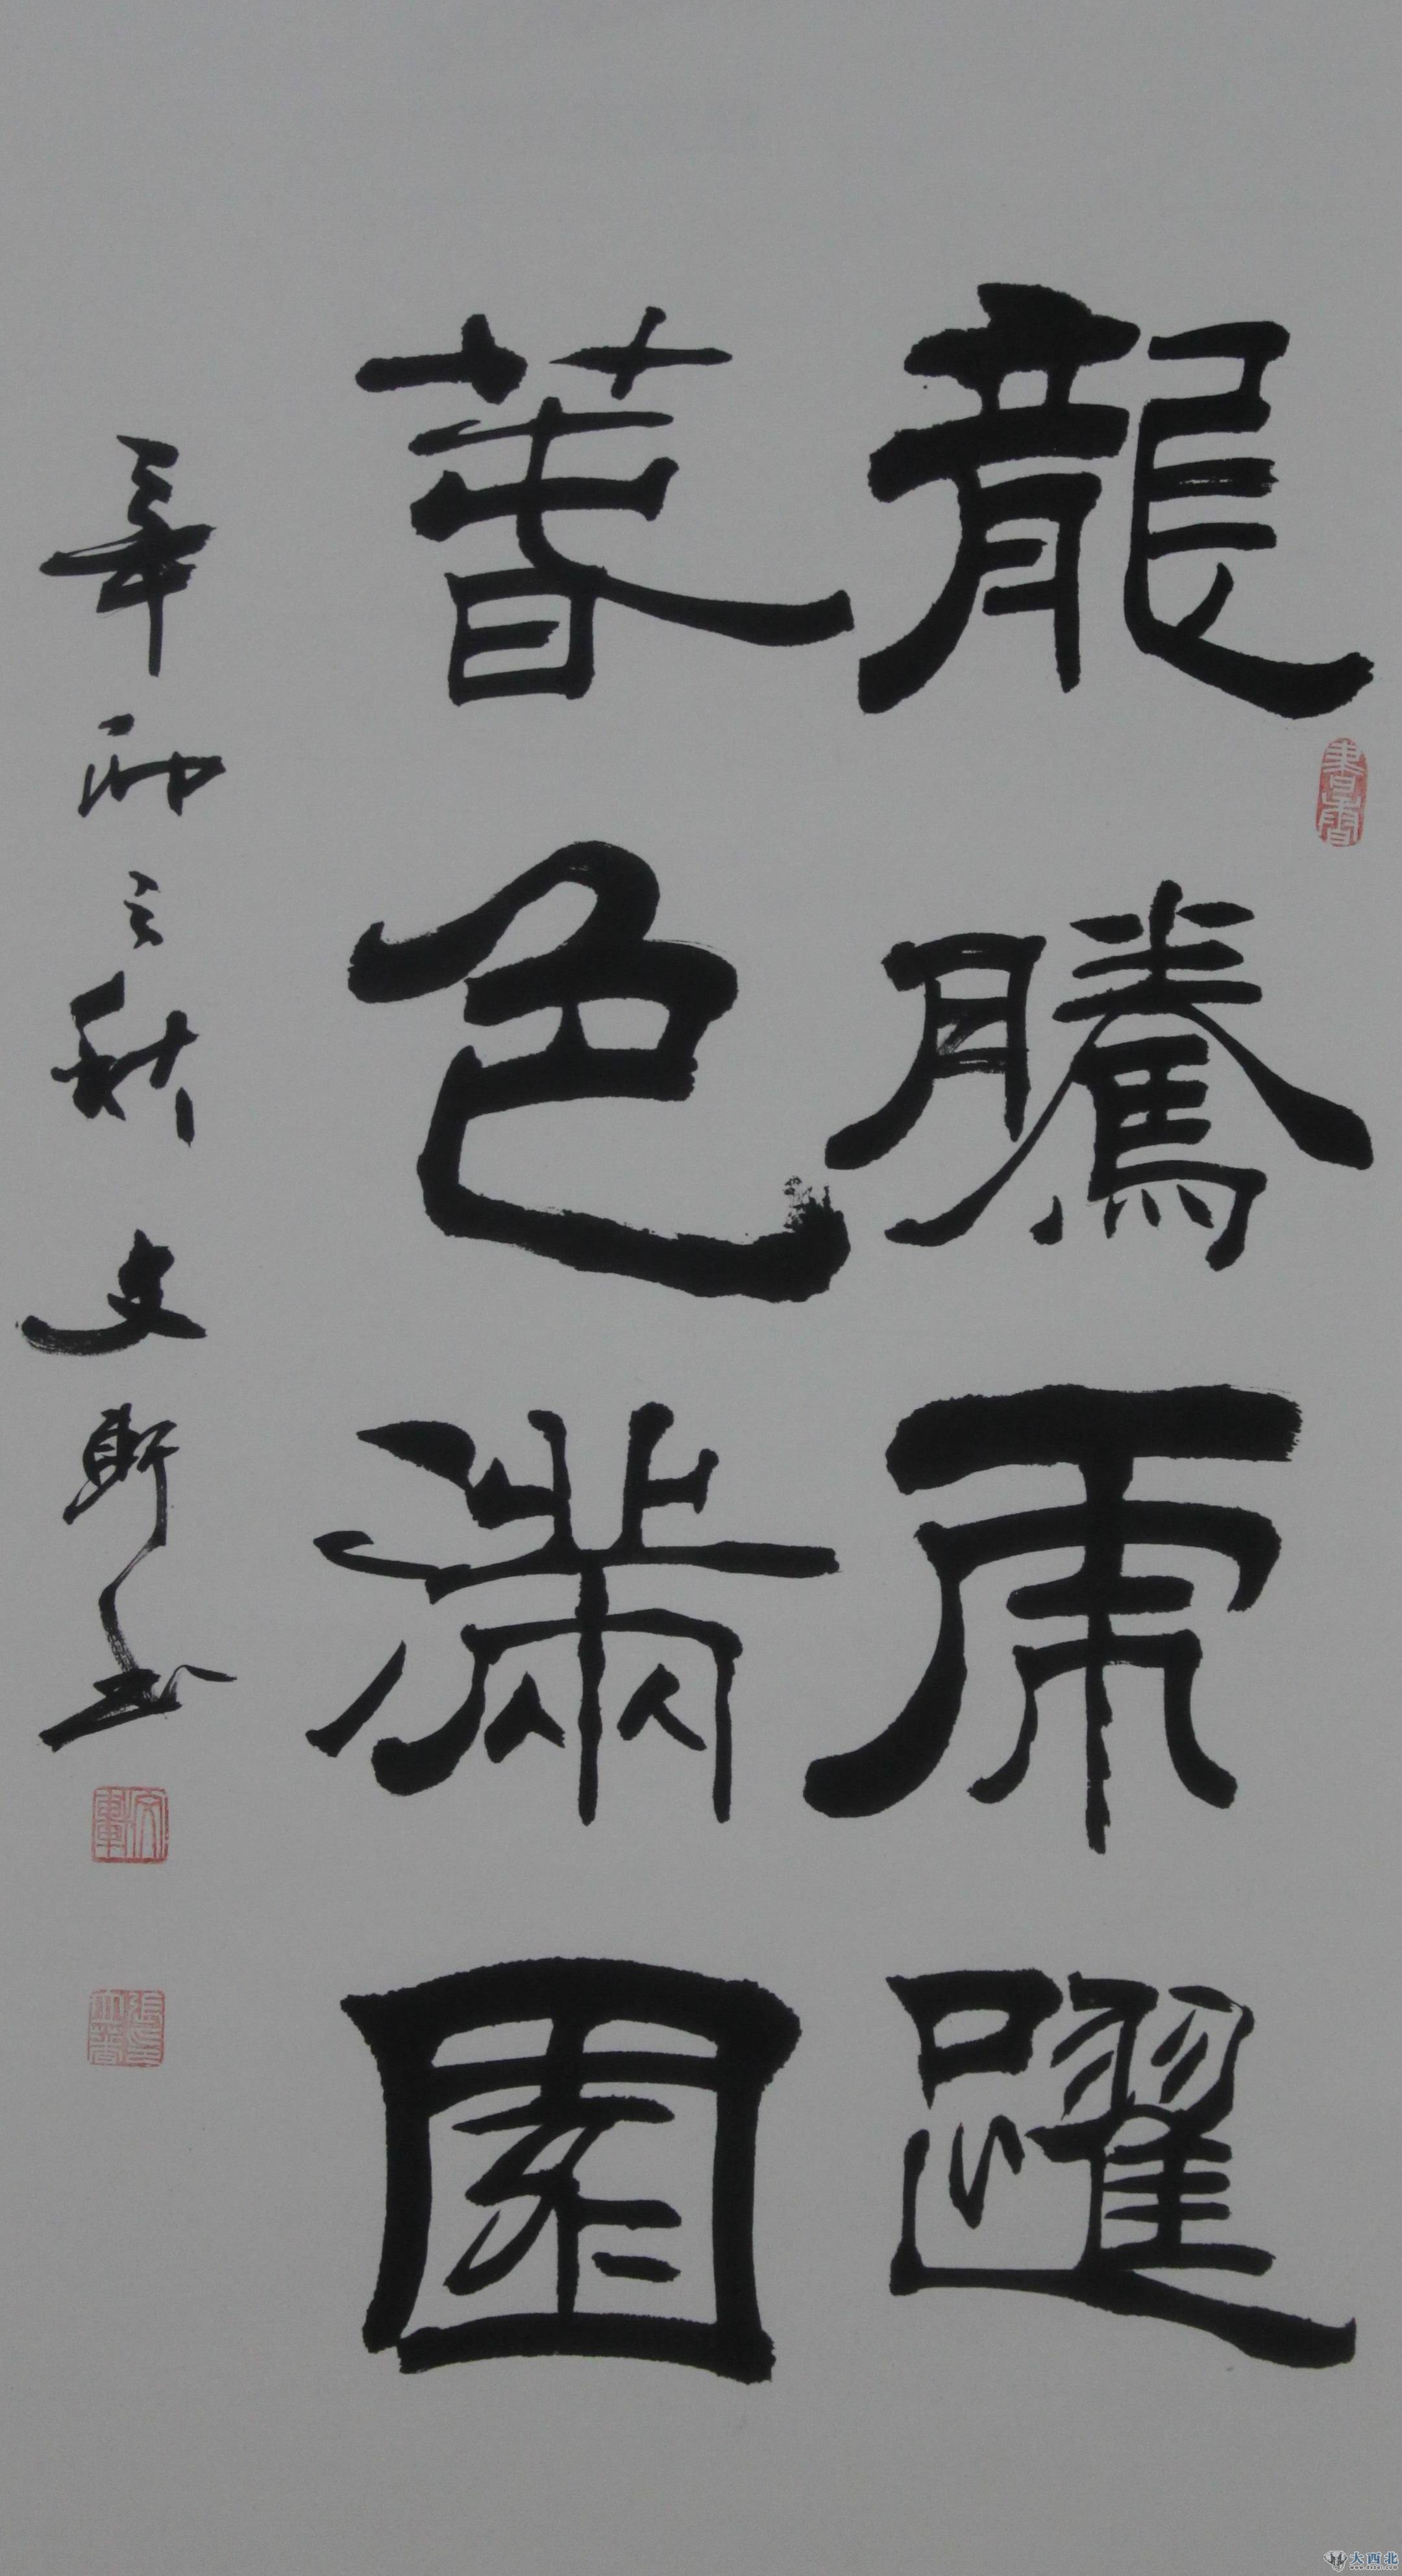 龍騰虎躍
萅色滿園
辛卯之秋文軒書
書香
大西北